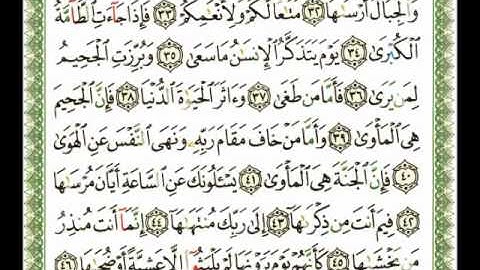 وَٱلْجِبَالَ أَرْسَىٰهَا ٣٢ مَتَٰعًا لَّكُمْ وَلِأَنْعَٰمِكُمْ ٣٣ فَإِذَا جَآءَتِ ٱلطَّآمَّةُ
ٱلْكُبْرَىٰ ٣٤ يَوْمَ يَتَذَكَّرُ ٱلْإِنسَٰنُ مَا سَعَىٰ ٣٥ وَبُرِّزَتِ ٱلْجَحِيمُ
لِمَن يَرَىٰ ٣٦ فَأَمَّا مَن طَغَىٰ ٣٧ وَءَاثَرَ ٱلْحَيَوٰةَ ٱلدُّنْيَا ٣٨ فَإِنَّ ٱلْجَحِيمَ
هِىَ ٱلْمَأْوَىٰ ٣٩ وَأَمَّا مَنْ خَافَ مَقَامَ رَبِّهِۦ وَنَهَى ٱلنَّفْسَ عَنِ ٱلْهَوَىٰ
٤٠ فَإِنَّ ٱلْجَنَّةَ هِىَ ٱلْمَأْوَىٰ ٤١ يَسْـَٔلُونَكَ عَنِ ٱلسَّاعَةِ أَيَّانَ مُرْسَىٰهَا
٤٢ فِيمَ أَنتَ مِن ذِكْرَىٰهَآ ٤٣ إِلَىٰ رَبِّكَ مُنتَهَىٰهَآ ٤٤ إِنَّمَآ أَنتَ مُنذِرُ
مَن يَخْشَىٰهَا ٤٥ كَأَنَّهُمْ يَوْمَ يَرَوْنَهَا لَمْ يَلْبَثُوٓا۟ إِلَّا عَشِيَّةً أَوْ ضُحَىٰهَا ٤٦